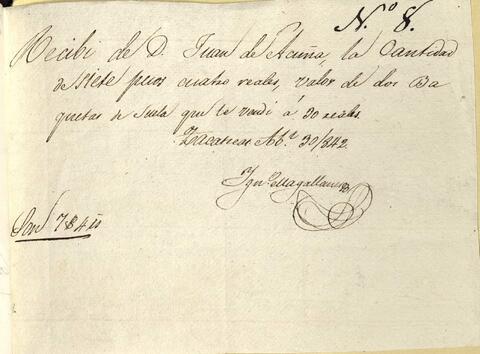 N.º 8.
Recibi de D. Juan de Acuña, la Cantidad
de siete pesos cuatro reales, valor de dos Ba
quetas de Suela que le vendí á 30 reales.
Zacatecas Ab.l 30/842.
Ign.o Magallanes
Son 7 $ 4 rs